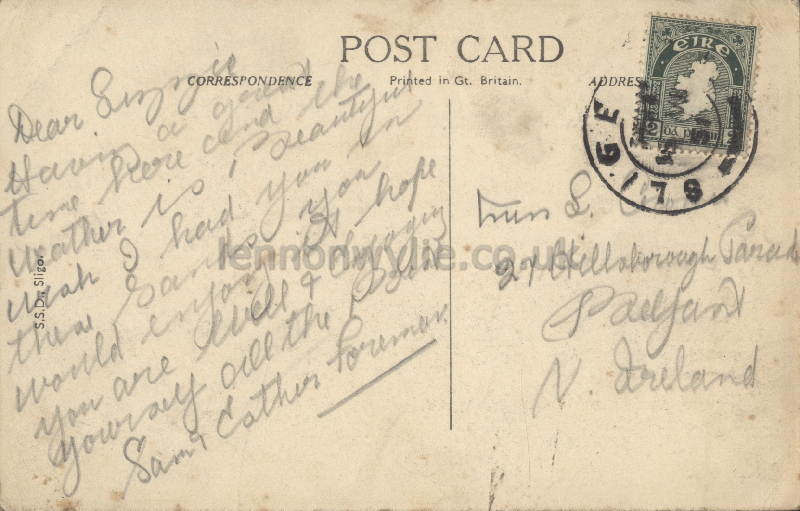 POST CARD
CORRESPONDENCE
Printed in Gt. Britain.
ADDRES
Dear Suzzie
Having a grand
time here and the
weather is beautiful
wish I had you on
these Sands. You
would enjoy it hope
you are well & enjoying
yourself all the best
Sam & Esther Foreman
S.S.D., Sligo.
EIRE
2
2
SLIGE
L.
21 Hillsborough Parade
Belfast
N. Ireland
lennonwylie.co.uk